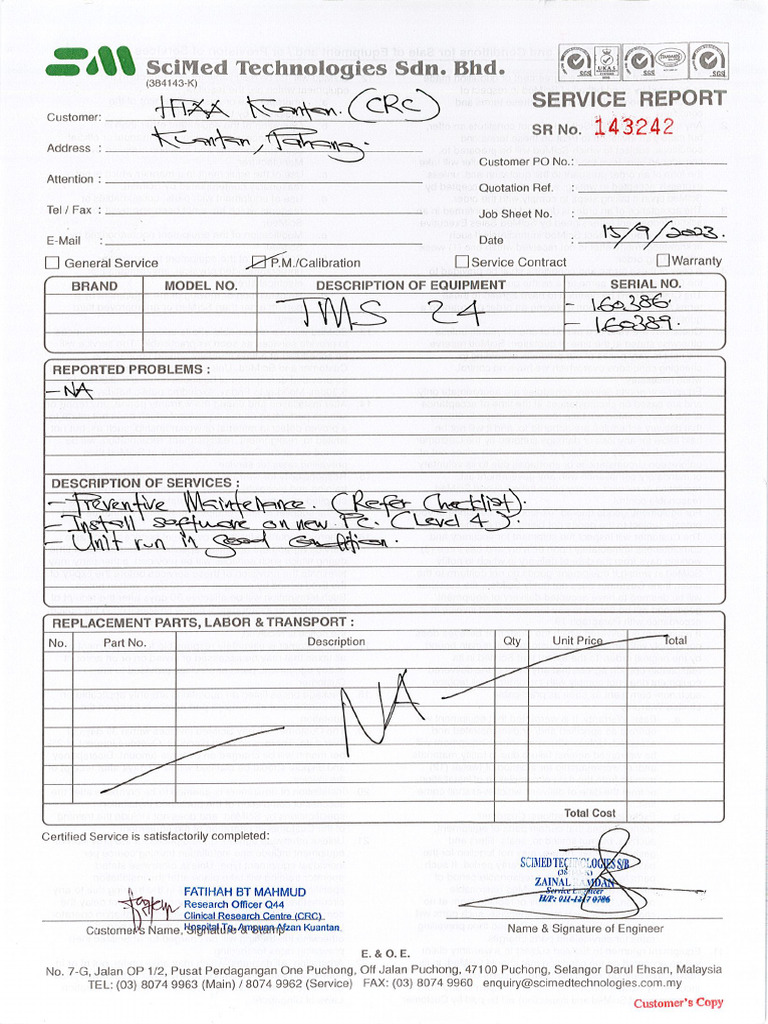 SM SciMed Technologies Sdn. Bhd.
(384143-K)
SGS UKAS SGS SGS
SERVICE REPORT
SR No. 143242
Customer: HTAA Kuantan. (CRC)
Address : Kuantan, Pahang.
Attention :
Tel / Fax :
E-Mail :
Customer PO No.:
Quotation Ref. :
Job Sheet No. :
Date : 15/9/2023.
General Service P.M./Calibration Service Contract Warranty
BRAND MODEL NO. DESCRIPTION OF EQUIPMENT SERIAL NO.
TMS 24 - 160386.
- 160389.
REPORTED PROBLEMS :
- NA
DESCRIPTION OF SERVICES :
- Preventive Maintenance. (Refer Checklist).
- Install software on new PC. (Level 4).
- Unit run in good condition.
REPLACEMENT PARTS, LABOR & TRANSPORT :
No. Part No. Description Qty Unit Price Total
NA
Total Cost
Certified Service is satisfactorily completed:
FATIHAH BT MAHMUD
Research Officer Q44
Clinical Research Centre (CRC)
Hospital Tg. Ampuan Afzan Kuantan.
Customer's Name, Signature & Stamp
SCIMED TECHNOLOGIES S/B
ZAINAL RAMDAN
Service Engineer
H/P: 011-1217 0786
Name & Signature of Engineer
E. & O. E.
No. 7-G, Jalan OP 1/2, Pusat Perdagangan One Puchong, Off Jalan Puchong, 47100 Puchong, Selangor Darul Ehsan, Malaysia
TEL: (03) 8074 9963 (Main) / 8074 9962 (Service) FAX: (03) 8074 9960 enquiry@scimedtechnologies.com.my
Customer's Copy